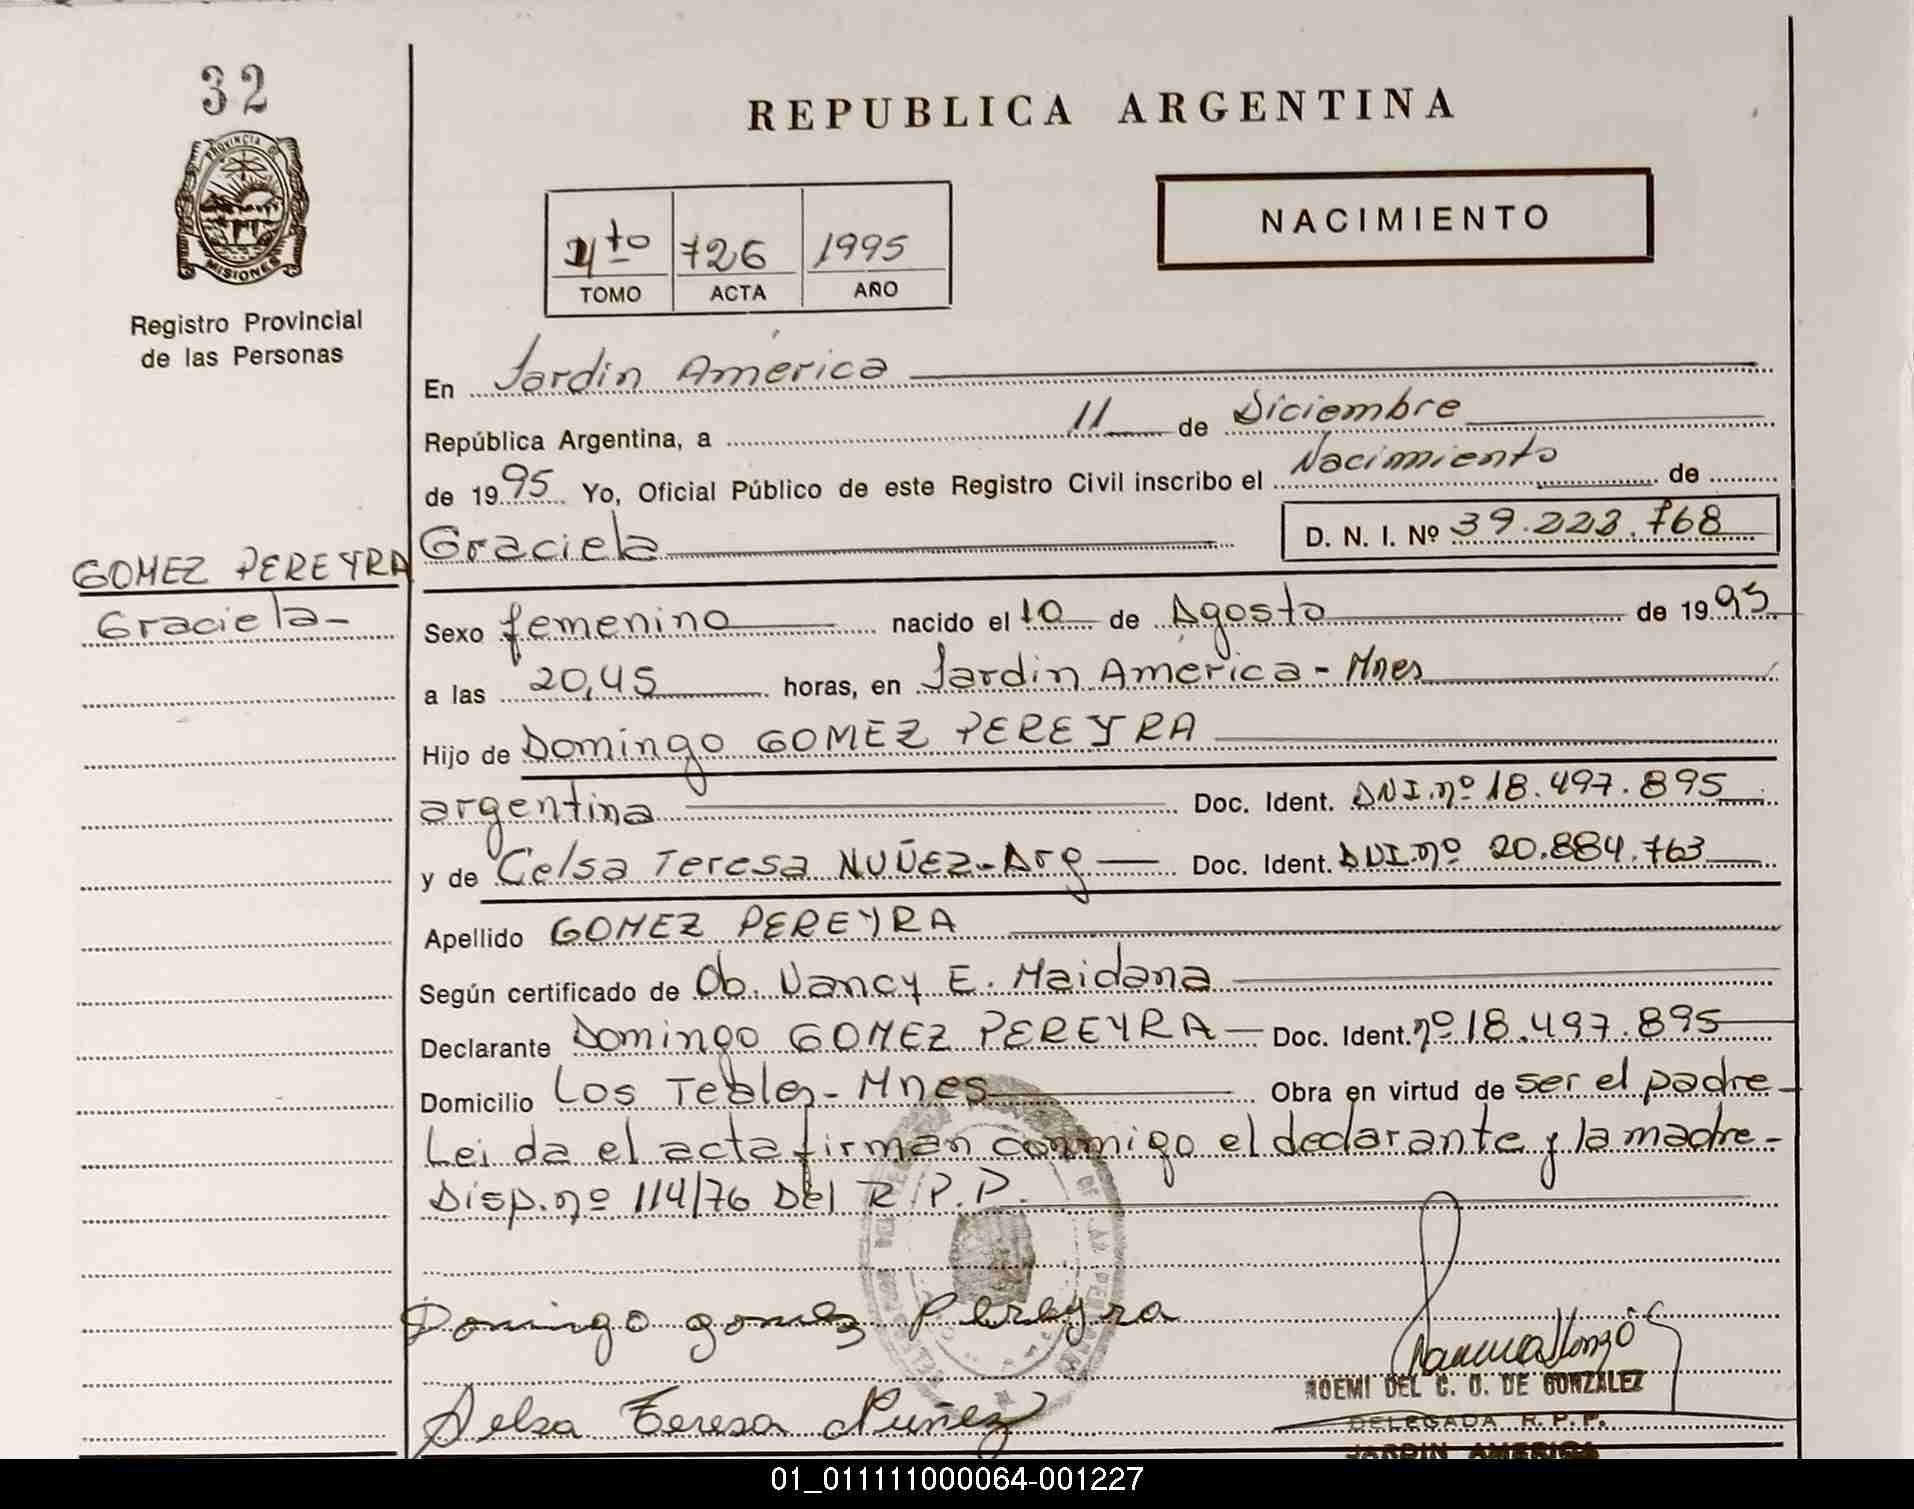 32
PROVINCIA D
MISIONES
Registro Provincial
de las Personas
REPUBLICA ARGENTINA
NACIMIENTO
4to 726 1995
TOMO ACTA AÑO
En Jardin América
República Argentina, a 11 de Diciembre
de 1995 Yo, Oficial Público de este Registro Civil inscribo el Nacimiento de
Graciela D. N. I. Nº 39.223.768
GOMEZ PEREYRA
Graciela-
Sexo femenino nacido el 10 de Agosto de 1995
a las 20,45 horas, en Jardin América - Mnes
Hijo de Domingo GOMEZ PEREYRA
argentina Doc. Ident. DNI.nº 18.497.895
y de Celsa Teresa NUÑEZ-Arg Doc. Ident. DNI.nº 20.884.763
Apellido GOMEZ PEREYRA
Según certificado de Ob. Nancy E. Maidana
Declarante Domingo GOMEZ PEREYRA Doc. Ident. nº 18.497.895
Domicilio Los Teales - Mnes Obra en virtud de ser el padre
Leida el acta firman conmigo el declarante y la madre-
Disp. nº 114/76 Del R.P.P.
Domingo gomez Pereyra
Selsa Teresa Nuñez
NOEMI DEL C. O. DE GONZALEZ
DELEGADA R.P.P.
JARDIN AMERICA
01_011111000064-001227